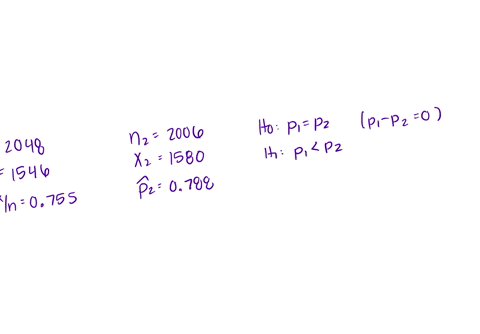 2048
= 1546
x/n = 0.755
n₂ = 2006
X₂ = 1580
p̂₂ = 0.788
H₀: p₁ = p₂ (p₁-p₂ = 0)
H₁: p₁ < p₂